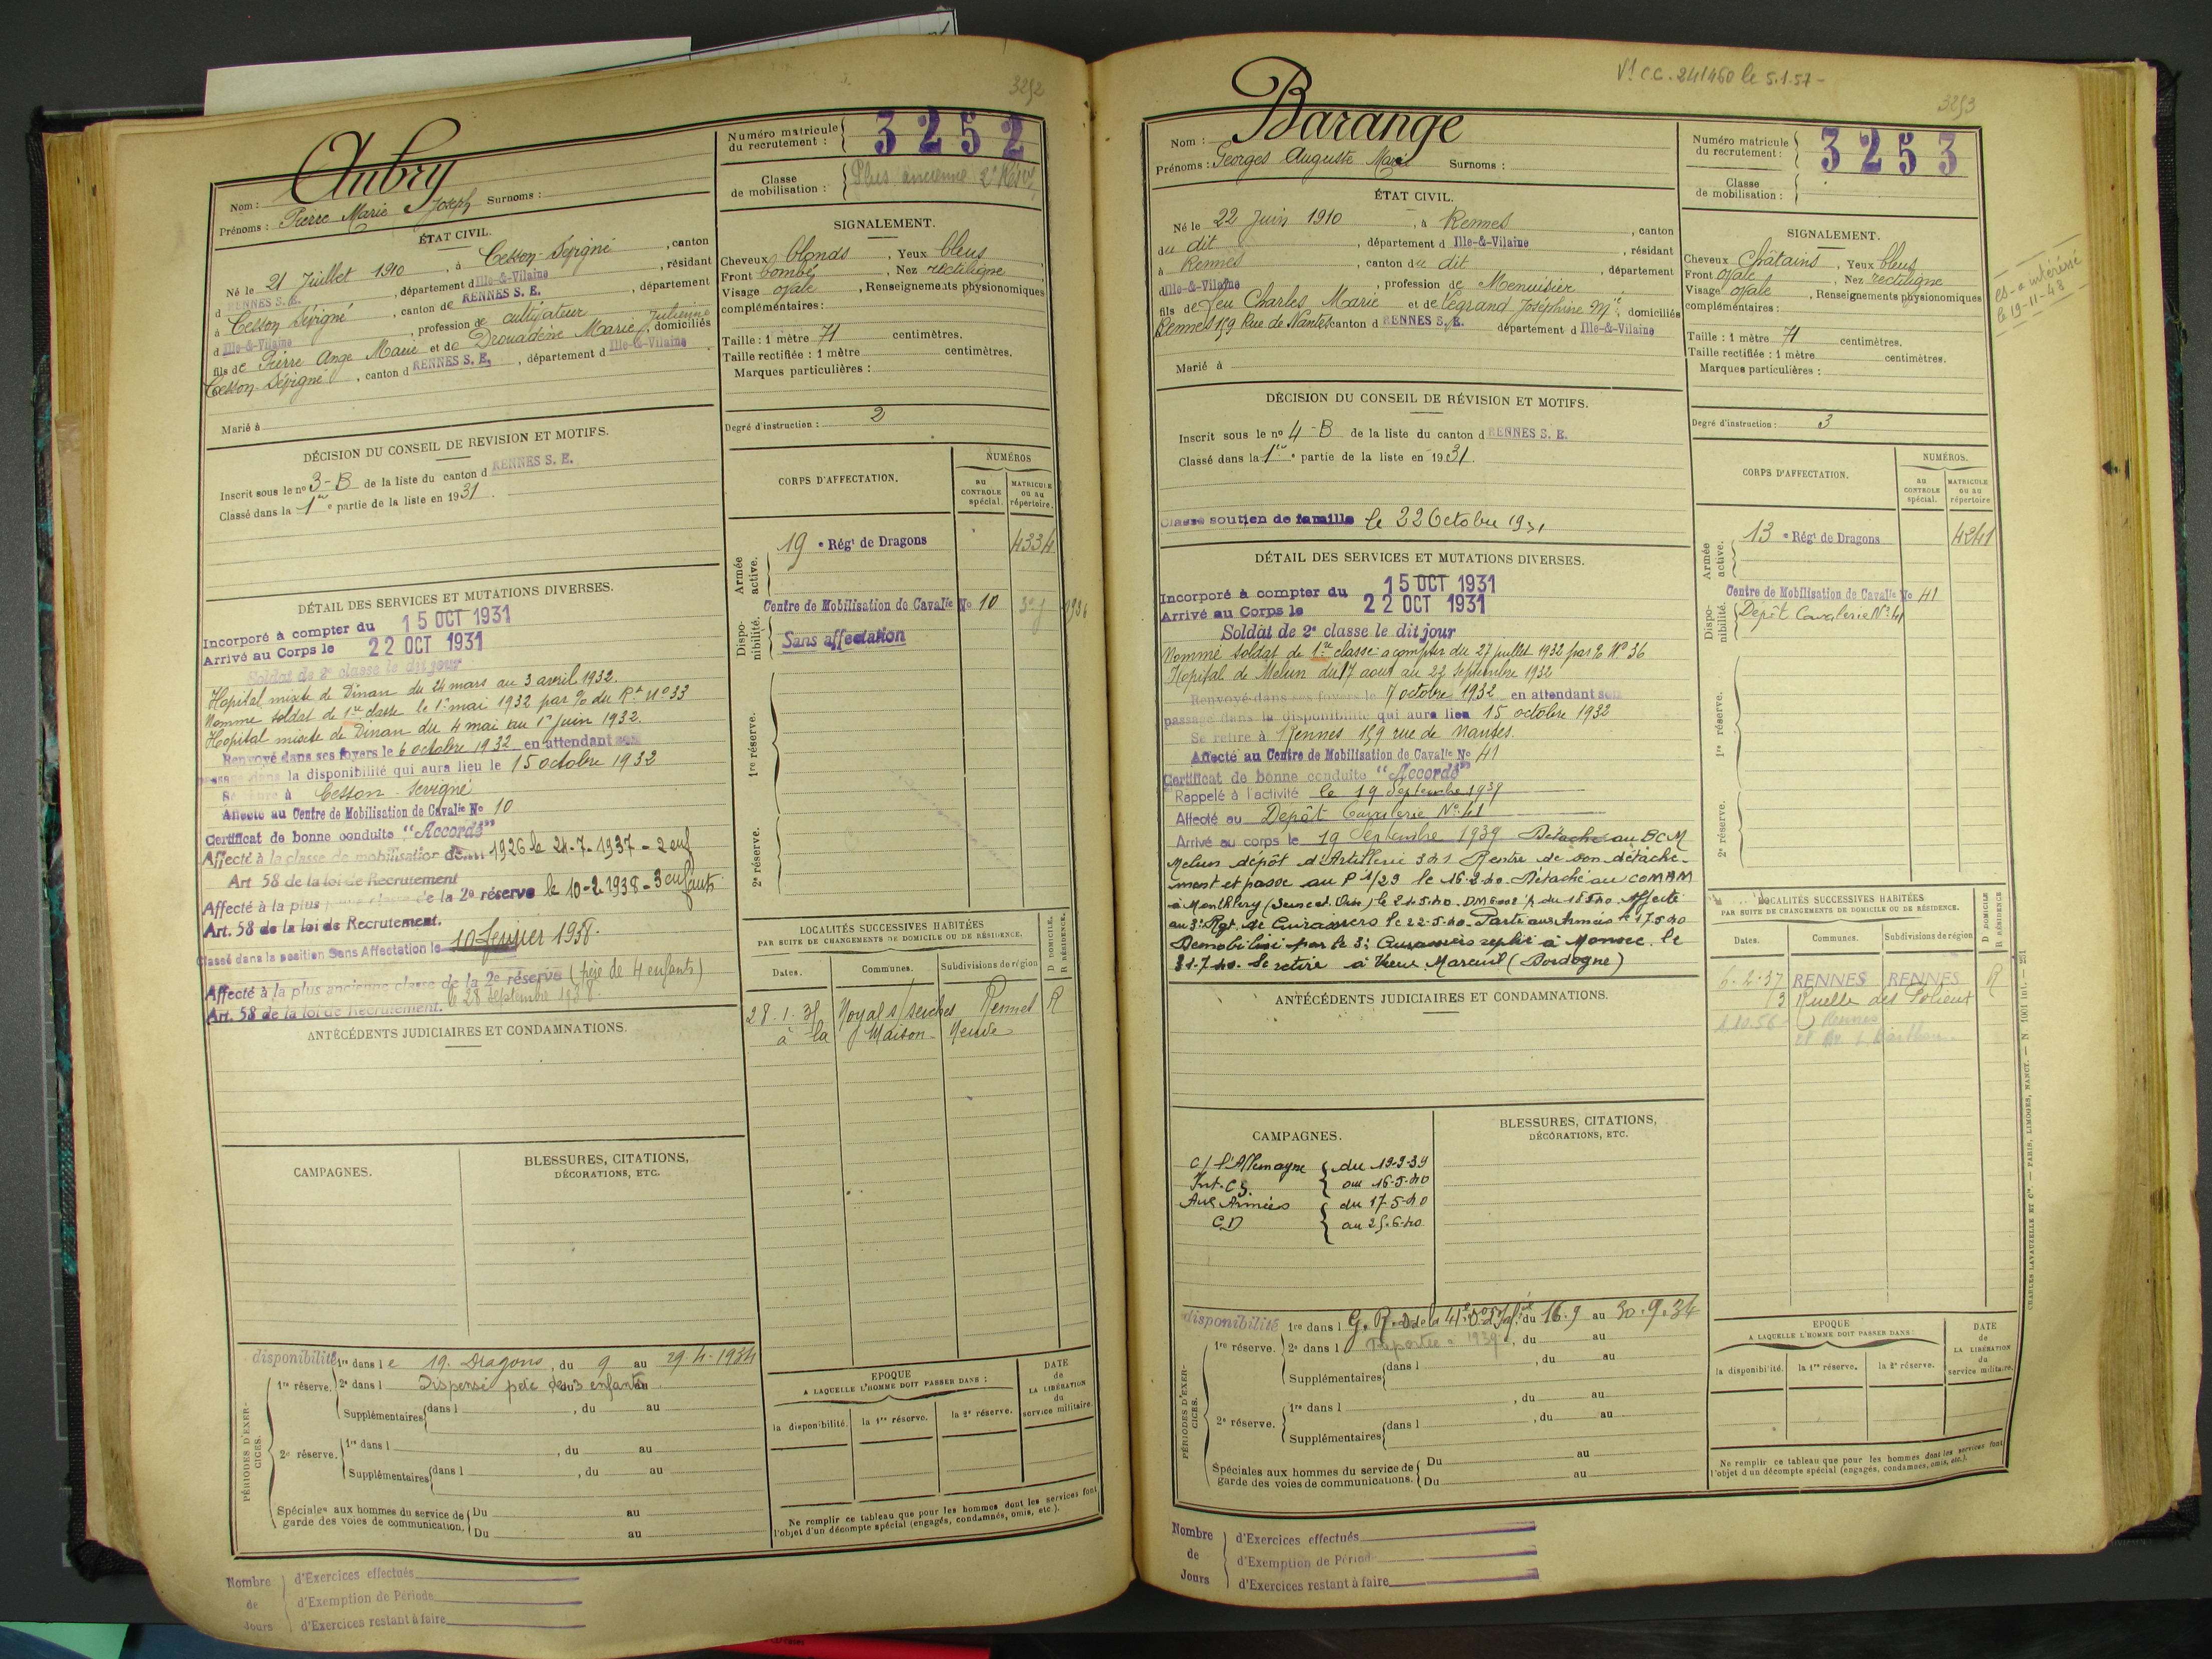 3252
Aubry
Nom :
Prénoms : Pierre Marie Joseph Surnoms :
Numéro matricule du recrutement : 3252
Classe de mobilisation : Plus ancienne 2e Rés
ÉTAT CIVIL.
Né le 21 Juillet 1910, à Cesson-Sévigné, canton
d RENNES S. E., département d Ille-&-Vilaine, résidant
à Cesson Sévigné, canton de RENNES S. E., département
d Ille-&-Vilaine, profession de cultivateur
fils de Pierre Ange Marie et de Drouadène Marie Julienne, domiciliés
Cesson-Sévigné, canton d RENNES S. E., département d Ille-&-Vilaine
Marié à
SIGNALEMENT.
Cheveux blonds, Yeux bleus
Front bombé, Nez rectiligne
Visage ovale, Renseignements physionomiques
complémentaires :
Taille : 1 mètre 71 centimètres.
Taille rectifiée : 1 mètre centimètres.
Marques particulières :
Degré d'instruction : 2
DÉCISION DU CONSEIL DE REVISION ET MOTIFS.
Inscrit sous le no 3-B de la liste du canton d RENNES S. E.
Classé dans la 1re partie de la liste en 1931.
CORPS D'AFFECTATION.
NUMÉROS
AU CONTROLE spécial.
MATRICULE OU AU répertoire.
Armée active.
19e Régt de Dragons 4334
Dispo-nibilité.
Centre de Mobilisation de Cavalie No 10
Sans affectation
1re réserve.
2e réserve.
DÉTAIL DES SERVICES ET MUTATIONS DIVERSES.
Incorporé à compter du 15 OCT 1931
Arrivé au Corps le 22 OCT 1931
Soldat de 2e classe le dit jour
Hopital mixte de Dinan du 24 mars au 3 avril 1932.
Nommé soldat de 1re classe le 1er mai 1932 par % du Rt No 33
Hopital mixte de Dinan du 4 mai au 1er juin 1932.
Renvoyé dans ses foyers le 6 octobre 1932 en attendant son
passage dans la disponibilité qui aura lieu le 15 octobre 1932
Se retire à Cesson-Sévigné
Affecté au Centre de Mobilisation de Cavalie No 10
Certificat de bonne conduite "Accordé"
Affecté à la classe de mobilisation de 1926 le 21-7-1937 - 2 enf
Art. 58 de la loi de Recrutement
Affecté à la plus jeune classe de la 2e réserve le 10-2-1938 - 3 enfants
Art. 58 de la loi de Recrutement.
Classé dans la position Sans Affectation le 10 février 1938.
Affecté à la plus ancienne classe de la 2e réserve (père de 4 enfants)
le 28 septembre 1938.
Art. 58 de la loi de Recrutement.
ANTÉCÉDENTS JUDICIAIRES ET CONDAMNATIONS.
LOCALITÉS SUCCESSIVES HABITÉES
PAR SUITE DE CHANGEMENTS DE DOMICILE OU DE RÉSIDENCE.
Dates. Communes. Subdivisions de région
D DOMICILE.
R RÉSIDENCE.
28-1-35 Noyal s/ Seiches Rennes R
à la Maison-Neuve
CAMPAGNES.
BLESSURES, CITATIONS, DÉCORATIONS, ETC.
PÉRIODES D'EXER-CICES.
disponibilité 1re dans le 19. Dragons, du 9 au 29-4-1934
1re réserve. 2e dans l Dispensé père de 3 enfants
Supplémentaires dans l , du au
2e réserve. 1re dans l , du au
Supplémentaires dans l , du au
Spéciales aux hommes du service de garde des voies de communication. Du au
Du au
EPOQUE
A LAQUELLE L'HOMME DOIT PASSER DANS :
la disponibilité. la 1re réserve. la 2e réserve.
DATE de LA LIBÉRATION du service militaire.
Ne remplir ce tableau que pour les hommes dont les services font
l'objet d'un décompte spécial (engagés, condamnés, omis, etc.).
Nombre de Jours
d'Exercices effectués
d'Exemption de Période
d'Exercices restant à faire
Vt C.C. 241460 le 5.1.57-
3253
Barange
Nom :
Prénoms : Georges Auguste Marie Surnoms :
Numéro matricule du recrutement : 3253
Classe de mobilisation :
ÉTAT CIVIL.
Né le 22 Juin 1910, à Rennes, canton
du dit, département d Ille-&-Vilaine, résidant
à Rennes, canton du dit, département
d Ille-&-Vilaine, profession de Menuisier
fils de Feu Charles Marie et de Legrand Joséphine Mie, domiciliés
Rennes 159 Rue de Nantes canton d RENNES S. E. département d Ille-&-Vilaine
Marié à
SIGNALEMENT.
Cheveux Chatains, Yeux bleus
Front ovale, Nez rectiligne
Visage ovale, Renseignements physionomiques
complémentaires :
Taille : 1 mètre 71 centimètres.
Taille rectifiée : 1 mètre centimètres.
Marques particulières :
Degré d'instruction : 3
le 19-11-48
DÉCISION DU CONSEIL DE RÉVISION ET MOTIFS.
Inscrit sous le no 4-B de la liste du canton d RENNES S. E.
Classé dans la 1re partie de la liste en 1931.
Classé soutien de famille le 22 Octobre 1931
CORPS D'AFFECTATION.
NUMÉROS.
AU CONTROLE spécial.
MATRICULE OU AU répertoire
Armée active.
13e Régt de Dragons 4241
Dispo-nibilité.
Centre de Mobilisation de Cavalie No 41
Dépôt Cavalerie No 41
1re réserve.
2e réserve.
DÉTAIL DES SERVICES ET MUTATIONS DIVERSES.
Incorporé à compter du 15 OCT 1931
Arrivé au Corps le 22 OCT 1931
Soldat de 2e classe le dit jour
Nommé soldat de 1re classe à compter du 27 juillet 1932 par % No 36
Hopital de Melun du 17 aout au 22 septembre 1932
Renvoyé dans ses foyers le 7 octobre 1932 en attendant son
passage dans la disponibilité qui aura lieu 15 octobre 1932
Se retire à Rennes 159 rue de Nantes.
Affecté au Centre de Mobilisation de Cavalie No 41
Certificat de bonne conduite "Accordé"
Rappelé à l'activité le 19 Septembre 1939
Affecté au Dépôt Cavalerie No 41
Arrivé au corps le 19 Septembre 1939 Détaché au BCM
Melun dépôt d'Artillerie 301 Rentre de son détache-
ment et passe au P 1/29 le 16.2.40. Détaché au COMAM
à Monthléry (Seine et Oise) le 24.5.40. DM 6002 du 18.5.40 Affecté
au 3e Rgt de Cuirassiers le 22-5-40. Parti aux Armées le 17.5.40
Démobilisé par le 3e Cuirassiers replié à Monsec le
31-7-40. Se retire à Vieux Mareuil (Dordogne)
ANTÉCÉDENTS JUDICIAIRES ET CONDAMNATIONS.
LOCALITÉS SUCCESSIVES HABITÉES
PAR SUITE DE CHANGEMENTS DE DOMICILE OU DE RÉSIDENCE.
Dates. Communes. Subdivisions de région
D DOMICILE
R RÉSIDENCE
6-2-37 RENNES RENNES R
13 Ruelle des
Rennes
CAMPAGNES.
BLESSURES, CITATIONS, DÉCORATIONS, ETC.
C/ l'Allemagne du 19-9-39
Int. CS. au 16-5-40
Aux Armées du 17-5-40
CD au 25-6-40
PÉRIODES D'EXER-CICES.
disponibilité 1re dans l G.R.D de la 41e D. Inf. du 16.9 au 30.9.34
1re réserve. 2e dans l Reportée à 1939, du au
Supplémentaires dans l , du au
2e réserve. 1re dans l , du au
Supplémentaires dans l , du au
Spéciales aux hommes du service de garde des voies de communications. Du au
Du au
EPOQUE
A LAQUELLE L'HOMME DOIT PASSER DANS :
la disponibilité. la 1re réserve. la 2e réserve.
DATE de LA LIBÉRATION du service militaire.
Ne remplir ce tableau que pour les hommes dont les services font
l'objet d'un décompte spécial (engagés, condamnés, omis, etc.).
Nombre de Jours
d'Exercices effectués
d'Exemption de Période
d'Exercices restant à faire
CHARLES LAVAUZELLE ET Cie. — PARIS, LIMOGES, NANCY.